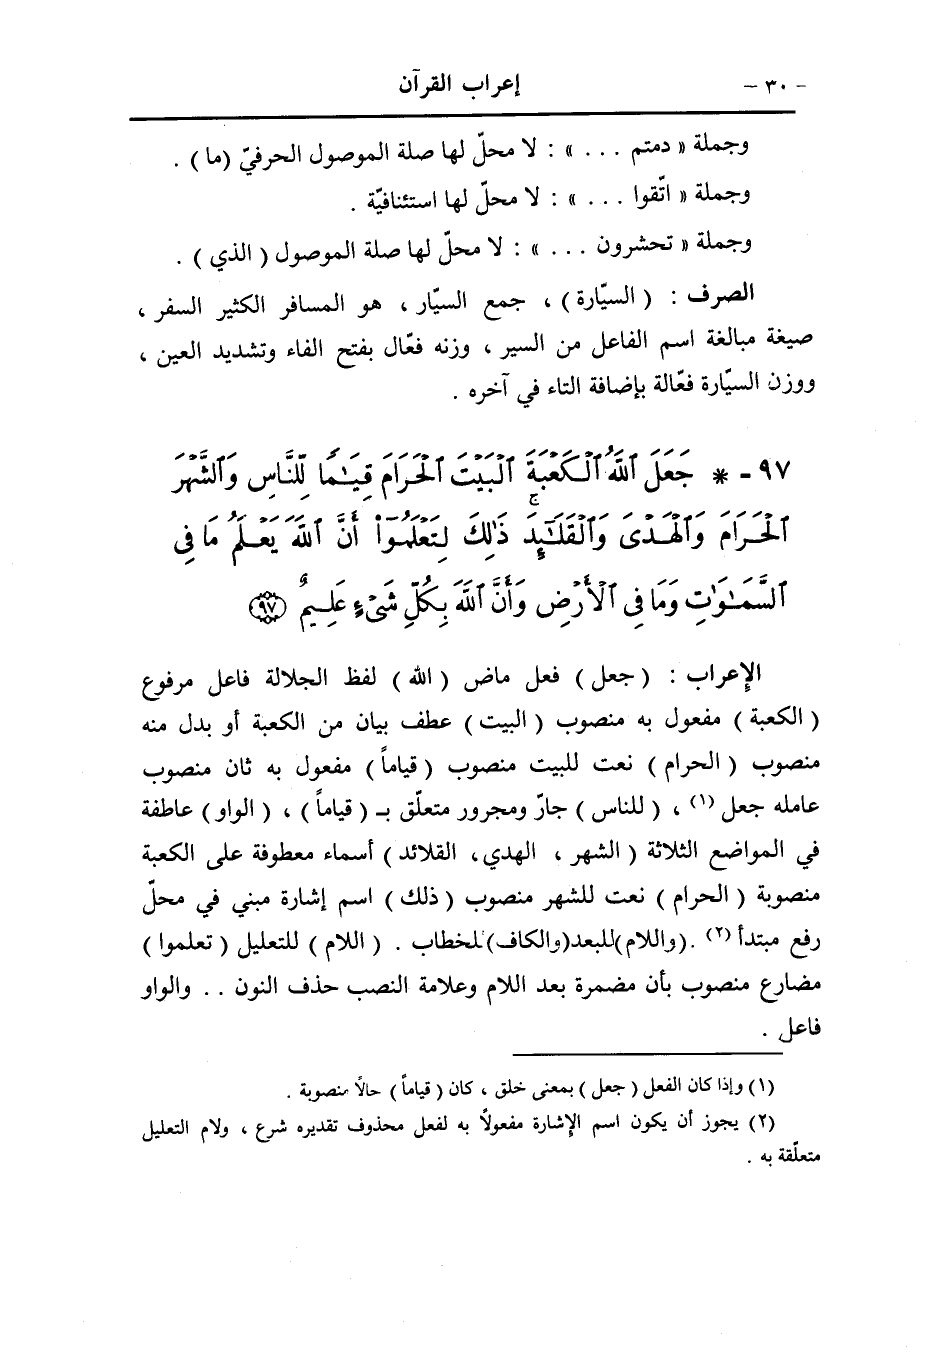 - ٣٠ - إعراب القرآن
وجملة « دمتم . . . » : لا محلّ لها صلة الموصول الحرفيّ (ما) .
وجملة « اتّقوا . . . » : لا محلّ لها استئنافيّة .
وجملة « تحشرون . . . » : لا محلّ لها صلة الموصول ( الذي ) .
الصرف : ( السيّارة ) ، جمع السيّار ، هو المسافر الكثير السفر ،
صيغة مبالغة اسم الفاعل من السير ، وزنه فعّال بفتح الفاء وتشديد العين ،
ووزن السيّارة فعّالة بإضافة التاء في آخره .
٩٧ - * جَعَلَ ٱللَّهُ ٱلْكَعْبَةَ ٱلْبَيْتَ ٱلْحَرَامَ قِيَـٰمًا لِّلنَّاسِ وَٱلشَّهْرَ
ٱلْحَرَامَ وَٱلْهَدْىَ وَٱلْقَلَـٰٓئِدَ ۚ ذَٰلِكَ لِتَعْلَمُوٓا۟ أَنَّ ٱللَّهَ يَعْلَمُ مَا فِى
ٱلسَّمَـٰوَٰتِ وَمَا فِى ٱلْأَرْضِ وَأَنَّ ٱللَّهَ بِكُلِّ شَىْءٍ عَلِيمٌ ﴿٩٧﴾
الإعراب : ( جعل ) فعل ماض ( الله ) لفظ الجلالة فاعل مرفوع
( الكعبة ) مفعول به منصوب ( البيت ) عطف بيان من الكعبة أو بدل منه
منصوب ( الحرام ) نعت للبيت منصوب ( قياماً ) مفعول به ثان منصوب
عامله جعل (١) ، ( للناس ) جارّ ومجرور متعلّق بـ ( قياماً ) ، ( الواو ) عاطفة
في المواضع الثلاثة ( الشهر ، الهدي ، القلائد ) أسماء معطوفة على الكعبة
منصوبة ( الحرام ) نعت للشهر منصوب ( ذلك ) اسم إشارة مبني في محلّ
رفع مبتدأ (٢) . (واللام)للبعد(والكاف)للخطاب . ( اللام ) للتعليل ( تعلموا )
مضارع منصوب بأن مضمرة بعد اللام وعلامة النصب حذف النون . . والواو
فاعل .
(١) وإذا كان الفعل ( جعل ) بمعنى خلق ، كان ( قياماً ) حالًا منصوبة .
(٢) يجوز أن يكون اسم الإشارة مفعولًا به لفعل محذوف تقديره شرع ، ولام التعليل
متعلّقة به .